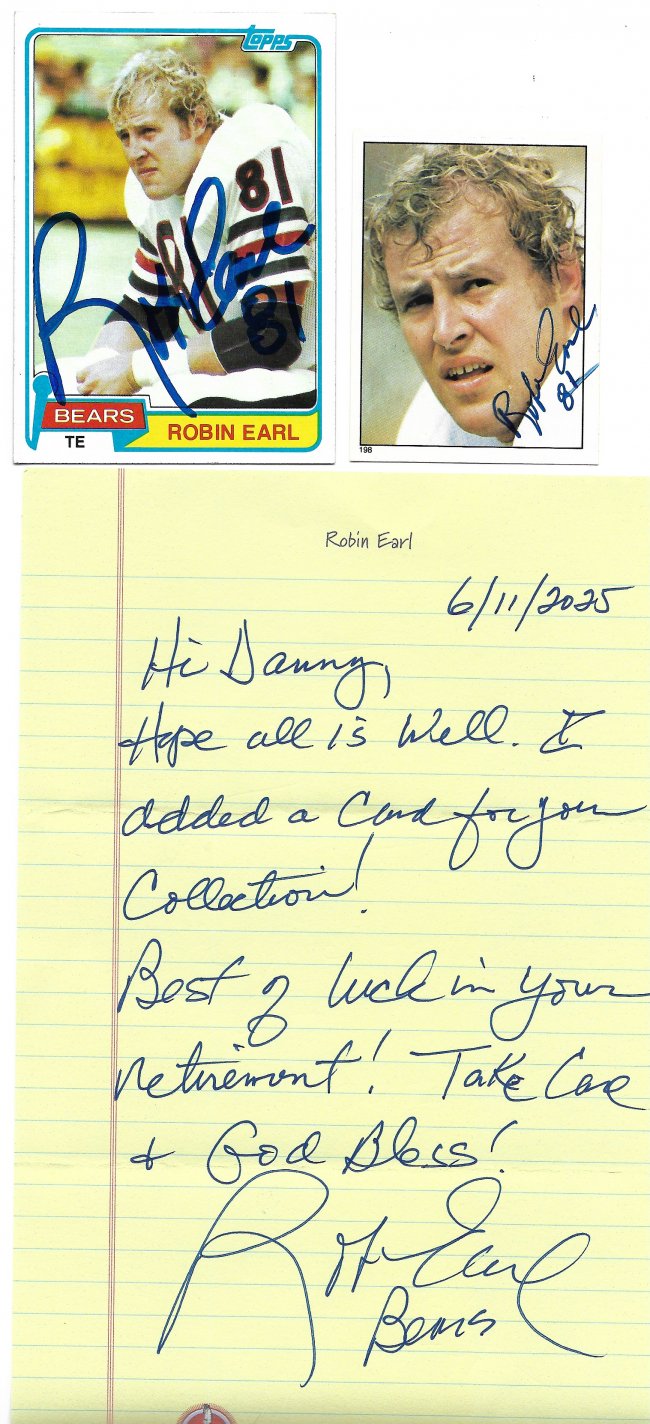 topps
81
Robin Earl
81
BEARS
TE
ROBIN EARL
Robin Earl
81
198
Robin Earl
6/11/2025
Hi Danny,
Hope all is Well. I
added a Card for your
Collection!
Best of luck in your
retirement! Take Care
+ God Bless!
Robin Earl
Bears